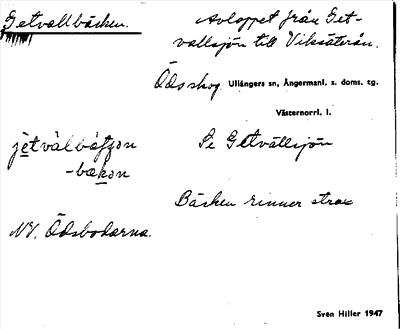 Getvallbäcken.
Avloppet från Get-
vallsjön till Viksäterån.
Ödsskog Ullångers sn, Ångermanl. s. doms. tg.
Västernorrl. l.
Se Getvallsjön
-bækən
Bäcken rinner strax
NV. Ödsbodarna.
Sven Hiller 1947